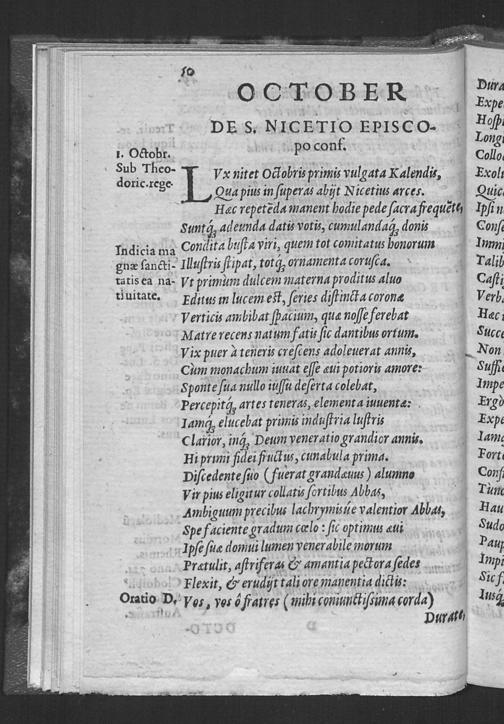 50
OCTOBER
DE S. NICETIO EPISCO-
po conf.
1. Octobr.
Sub Theo-
doric. rege.
LVx nitet Octobris primis vulgata Kalendis,
Qua pius in superas abijt Nicetius arces.
Hæc repetẽda manent hodie pede sacra frequẽte,
Suntq́; adeunda datis votis, cumulandaq́; donis
Indicia ma
gnæ sancti-
tatis ea na-
tiuitate.
Condita busta viri, quem tot comitatus honorum
Illustris stipat, totq́; ornamenta corusca.
Vt primùm dulcem materna proditus aluo
Editus in lucem est, series distincta coronæ
Verticis ambibat spacium, quæ nosse ferebat
Matre recens natum fatis sic dantibus ortum.
Vix puer à teneris crescens adoleuerat annis,
Cùm monachum iuuat esse æui potioris amore:
Sponte sua nullo iussu deserta colebat,
Percepitq́; artes teneras, elementa iuuentæ:
Iamq́; elucebat primis industria lustris
Clarior, inq́; Deum veneratio grandior annis.
Hi primi fidei fructus, cunabula prima.
Discedente suo (fuerat grandæuus) alumno
Vir pius eligitur collatis sortibus Abbas,
Ambiguum precibus lachrymisúe valentior Abbas,
Spe faciente gradum cœlo: sic optimus æui
Ipse suæ domui lumen venerabile morum
Prætulit, astriferas & amantia pectora sedes
Flexit, & erudijt tali ore manentia dictis:
Oratio D.
Vos, vos ô fratres (mihi coniunctissima corda)
Durate,